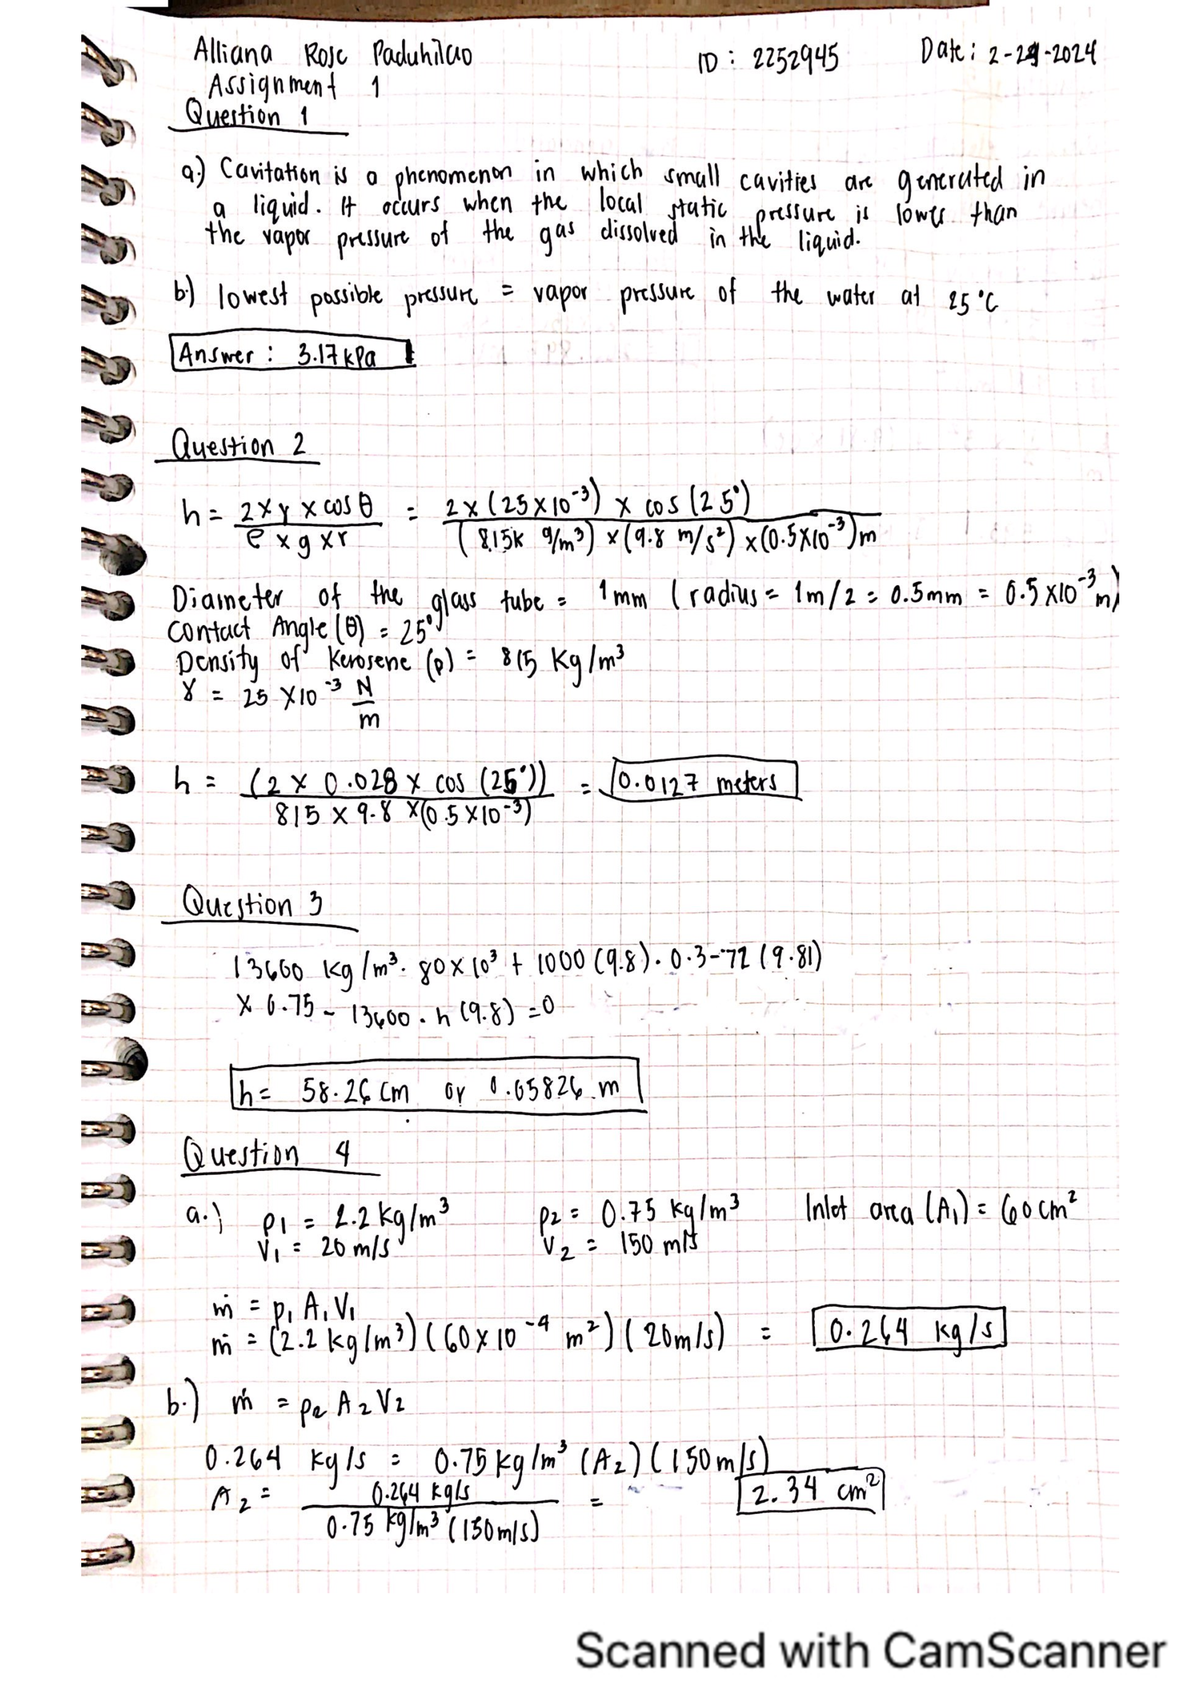 Alliana Rose Paduhilao ID : 2252945 Date : 2-29-2024
Assignment 1
Question 1
a.) Cavitation is a phenomenon in which small cavities are generated in
a liquid. It occurs when the local static pressure is lower than
the vapor pressure of the gas dissolved in the liquid.
b.) lowest possible pressure = vapor pressure of the water at 25 °C
Answer : 3.17 kPa
Question 2
h = 2 x γ x cos θ / ρ x g x r = 2 x (25 x 10⁻³) x cos (25°) / (815k g/m³) x (9.8 m/s²) x (0.5 x 10⁻³)m
Diameter of the glass tube = 1 mm (radius = 1m/2 = 0.5mm = 0.5 x 10⁻³ m)
Contact Angle (θ) = 25°
Density of Kerosene (ρ) = 815 Kg/m³
γ = 25 x 10⁻³ N/m
h = (2 x 0.028 x cos (25°)) / 815 x 9.8 x (0.5 x 10⁻³) = 0.0127 meters
Question 3
13600 kg/m³. 80 x 10³ + 1000 (9.8). 0.3 - 72 (9.81)
x 0.75 - 13600 . h (9.8) = 0
h = 58.26 cm or 0.05826 m
Question 4
a.) ρ1 = 2.2 kg/m³ ρ2 = 0.75 kg/m³ Inlet area (A₁) = 60 cm²
V₁ = 20 m/s V₂ = 150 m/s
ṁ = ρ₁ A₁ V₁
ṁ = (2.2 kg/m³) (60 x 10⁻⁴ m²) (20m/s) = 0.264 kg/s
b.) ṁ = ρ₂ A₂ V₂
0.264 kg/s = 0.75 kg/m³ (A₂) (150 m/s)
A₂ = 0.264 kg/s / 0.75 kg/m³ (150 m/s) = 2.34 cm²
Scanned with CamScanner